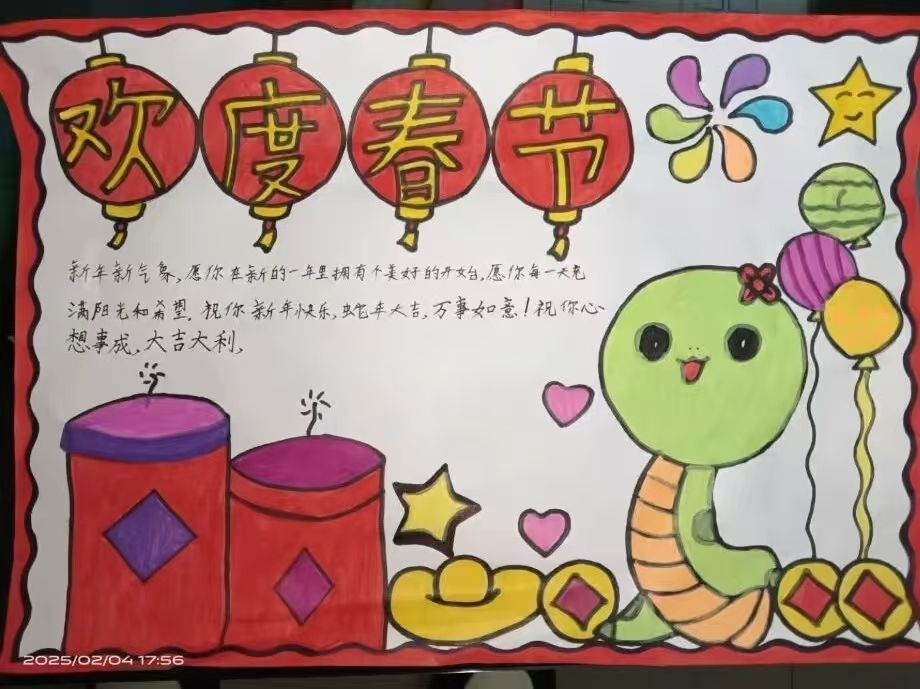 欢度春节
新年新气象,愿你在新的一年里拥有个美好的开始,愿你每一天充
满阳光和希望,祝你新年快乐,蛇年大吉,万事如意!祝你心
想事成,大吉大利,
2025/02/04 17:56